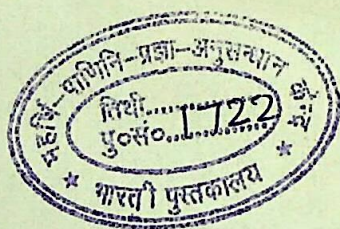 महर्षि-पाणिनि-प्रज्ञा-अनुसन्धान
तिथी..............
पु०सं०..1722
* भारती पुस्तकालय *